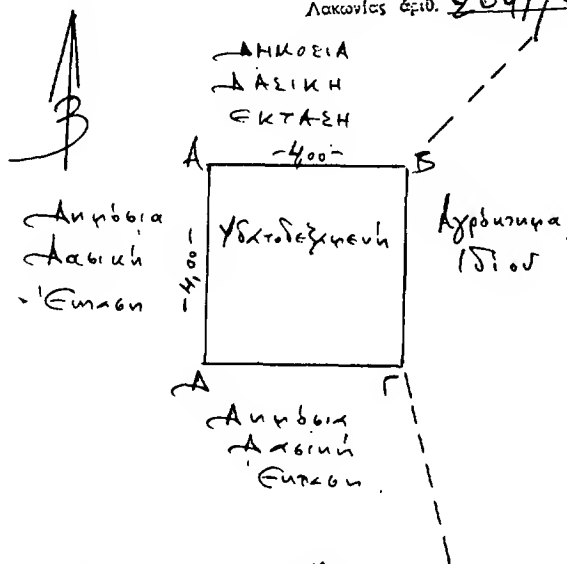 Λακωνίας ἀριθ.
ΔΗΜΟΣΙΑ
ΔΑΣΙΚΗ
ΕΚΤΑΣΗ
Β
Α
-4,00-
Β
Δημόσια
Δασική
Έκταση
-4,00-
Υδατοδεξαμενή
Αγρόκτημα
Ιδίου
Δ
Γ
Δημόσια
Δασική
Έκταση